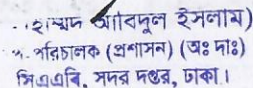 (হাম্মদ আবিদুল ইসলাম)
পরিচালক (প্রশাসন) (অঃ দাঃ)
সিএএবি, সদর দপ্তর, ঢাকা।